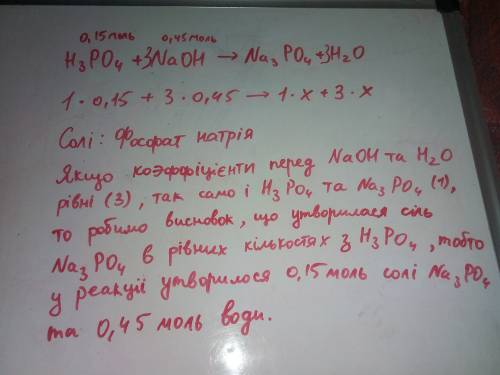 0,15моль 0,45моль
H₃PO₄ + 3NaOH → Na₃PO₄ + 3H₂O
1 · 0,15 + 3 · 0,45 → 1 · x + 3 · x
Солі: Фосфат натрія
Якщо коэффіцієнти перед NaOH та H₂O
рівні (3), так само і H₃PO₄ та Na₃PO₄ (1),
то робимо висновок, що утворилася сіль
Na₃PO₄ в рівних кількостях з H₃PO₄, тобто
у реакції утворилося 0,15 моль солі Na₃PO₄
та 0,45 моль води.